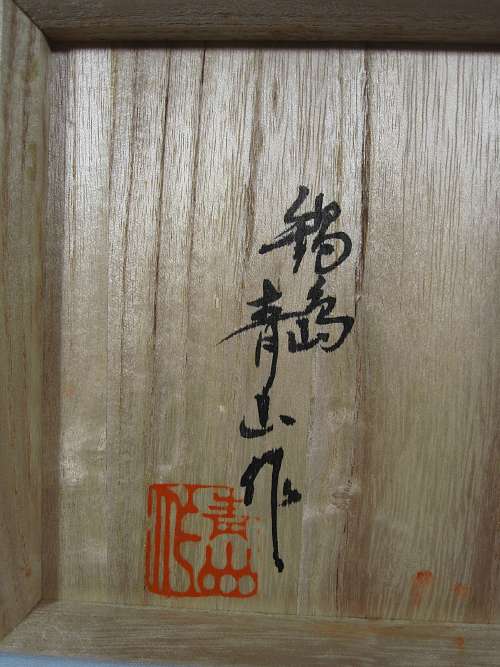 鍋島
青山作
青山
作